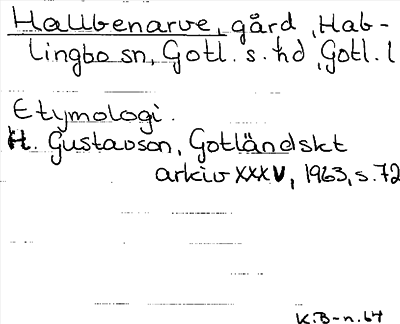 Hallbenarve, gård, Hab-
lingbo sn, Gotl. s. hd, Gotl. l
Etymologi.
H. Gustavson, Gotländskt
arkiv XXXV, 1963, s. 72
K.B-n. 64